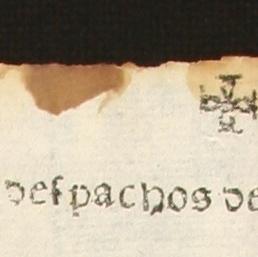 ✠
deſpachos de